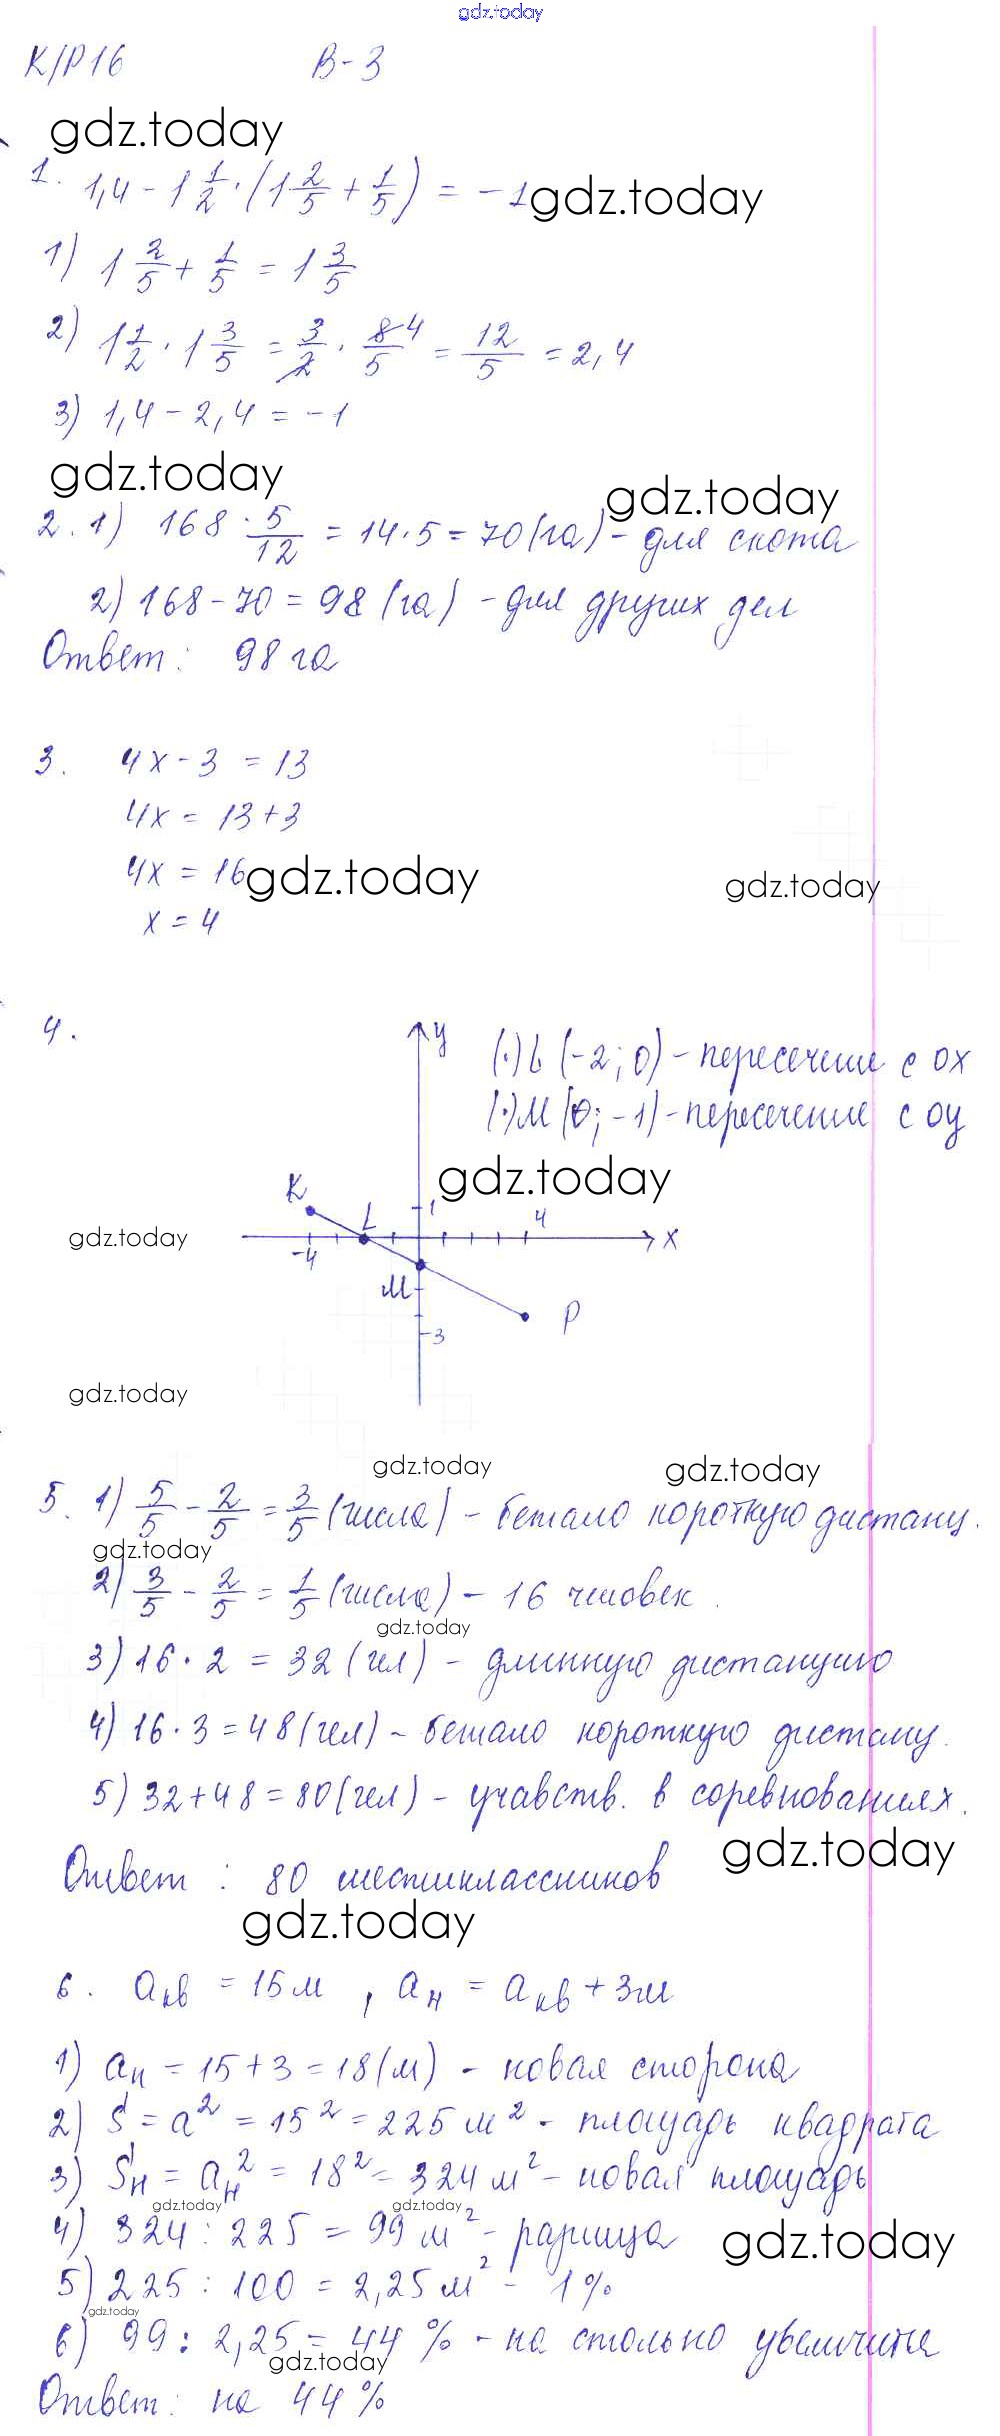 gdz.today
К/Р16 В-3
gdz.today
1. 1,4 - 1 1/2 · (1 2/5 + 1/5) = -1 gdz.today
1) 1 2/5 + 1/5 = 1 3/5
2) 1 1/2 · 1 3/5 = 3/2 · 8/5 4 = 12/5 = 2,4
3) 1,4 - 2,4 = -1
gdz.today gdz.today
2. 1) 168 · 5/12 = 14 · 5 = 70 (га) - для скота
2) 168 - 70 = 98 (га) - для других дел
Ответ: 98 га
3. 4x - 3 = 13
4x = 13 + 3
4x = 16 gdz.today gdz.today
x = 4
4. y (·) L (-2; 0) - пересечение с ox
(·) M (0; -1) - пересечение с oy
gdz.today
K L 1 4
gdz.today -4 x
M P
-3
gdz.today
gdz.today gdz.today
5. 1) 5/5 - 2/5 = 3/5 (числа) - бежало короткую дистанц.
gdz.today
2) 3/5 - 2/5 = 1/5 (числа) - 16 человек.
gdz.today
3) 16 · 2 = 32 (чел) - длинную дистанцию
4) 16 · 3 = 48 (чел) - бежало короткую дистанц.
5) 32 + 48 = 80 (чел) - учавств. в соревнованиях.
gdz.today
Ответ: 80 шестиклассников
gdz.today
6. aкв = 15 м, aн = aкв + 3м
1) aн = 15 + 3 = 18 (м) - новая сторона
2) S = a² = 15² = 225 м² - площадь квадрата
3) Sн = aн² = 18² = 324 м² - новая площадь
gdz.today gdz.today
4) 324 : 225 = 99 м² - разница gdz.today
5) 225 : 100 = 2,25 м² - 1%
gdz.today
6) 99 : 2,25 = 44 % - на столько увеличите
gdz.today
Ответ: на 44%